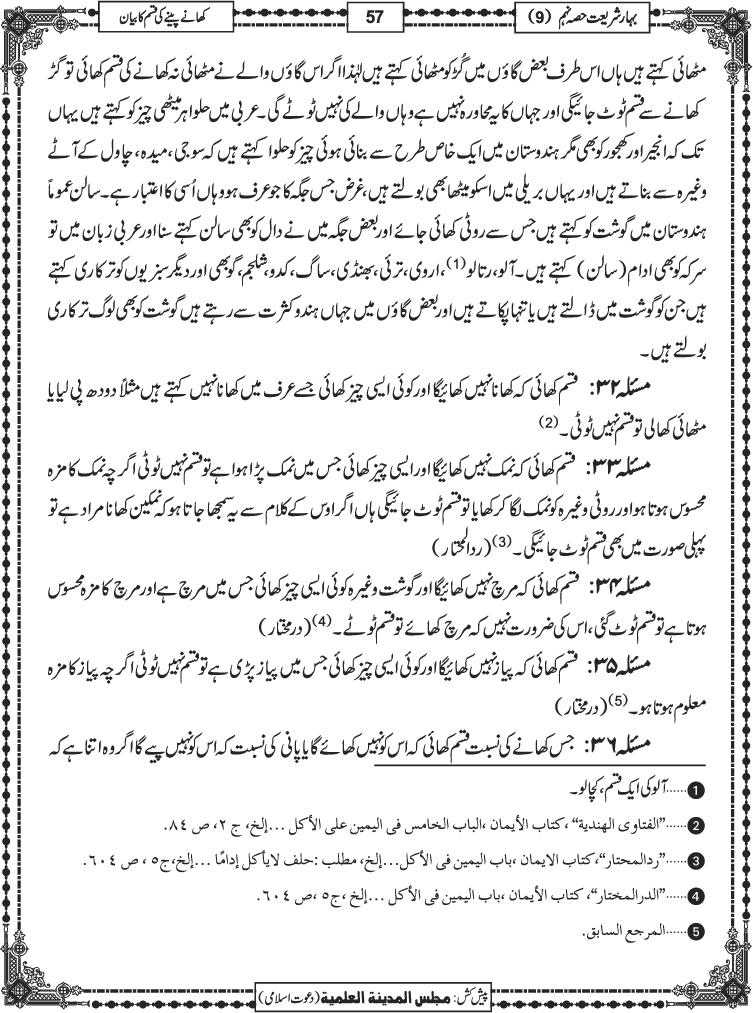 بہار شریعت حصہ نہم (9)
57
کھانے پینے کی قسم کا بیان
مٹھائی کہتے ہیں ہاں اس طرف بعض گاؤں میں گُڑ کو مٹھائی کہتے ہیں لہٰذا اگر اس گاؤں والے نے مٹھائی نہ کھانے کی قسم کھائی تو گڑ
کھانے سے قسم ٹوٹ جائیگی اور جہاں کا یہ محاورہ نہیں ہے وہاں والے کی نہیں ٹوٹے گی۔ عربی میں حلوا ہر میٹھی چیز کو کہتے ہیں یہاں
تک کہ انجیر اور کھجور کو بھی مگر ہندوستان میں ایک خاص طرح سے بنائی ہوئی چیز کو حلوا کہتے ہیں کہ سوجی، میدہ، چاول کے آٹے
وغیرہ سے بناتے ہیں اور یہاں بریلی میں اسکو میٹھا بھی بولتے ہیں، غرض جس جگہ کا جو عرف ہو وہاں اُسی کا اعتبار ہے۔ سالن عموماً
ہندوستان میں گوشت کو کہتے ہیں جس سے روٹی کھائی جائے اور بعض جگہ میں نے دال کو بھی سالن کہتے سنا اور عربی زبان میں تو
سرکہ کو بھی ادام (سالن) کہتے ہیں۔ آلو، رتالو(1)، اروی، ترئی، بھنڈی، ساگ، کدو، شلجم، گوبھی اور دیگر سبزیوں کو ترکاری کہتے
ہیں جن کو گوشت میں ڈالتے ہیں یا تنہا پکاتے ہیں اور بعض گاؤں میں جہاں ہندو کثرت سے رہتے ہیں گوشت کو بھی لوگ ترکاری
بولتے ہیں۔
مسئلہ ۳۲: قسم کھائی کہ کھانا نہیں کھائیگا اور کوئی ایسی چیز کھائی جسے عرف میں کھانا نہیں کہتے ہیں مثلاً دودھ پی لیا یا
مٹھائی کھالی تو قسم نہیں ٹوٹی۔(2)
مسئلہ ۳۳: قسم کھائی کہ نمک نہیں کھائیگا اور ایسی چیز کھائی جس میں نمک پڑا ہوا ہے تو قسم نہیں ٹوٹی اگرچہ نمک کا مزہ
محسوس ہوتا ہو اور روٹی وغیرہ کو نمک لگا کر کھایا تو قسم ٹوٹ جائیگی ہاں اگر اوس کے کلام سے یہ سمجھا جاتا ہو کہ نمکین کھانا مراد ہے تو
پہلی صورت میں بھی قسم ٹوٹ جائیگی۔(3) (ردالمحتار)
مسئلہ ۳۴: قسم کھائی کہ مرچ نہیں کھائیگا اور گوشت وغیرہ کوئی ایسی چیز کھائی جس میں مرچ ہے اور مرچ کا مزہ محسوس
ہوتا ہے تو قسم ٹوٹ گئی، اس کی ضرورت نہیں کہ مرچ کھائے تو قسم ٹوٹے۔(4) (درمختار)
مسئلہ ۳۵: قسم کھائی کہ پیاز نہیں کھائیگا اور کوئی ایسی چیز کھائی جس میں پیاز پڑی ہے تو قسم نہیں ٹوٹی اگرچہ پیاز کا مزہ
معلوم ہوتا ہو۔(5) (درمختار)
مسئلہ ۳۶: جس کھانے کی نسبت قسم کھائی کہ اس کو نہیں کھائے گا یا پانی کی نسبت کہ اس کو نہیں پیے گا اگر وہ اتنا ہے کہ
1 ......آلو کی ایک قسم، کچالو۔
2 ......"الفتاوی الهندية"، کتاب الأیمان، الباب الخامس فی الیمین علی الأکل ...إلخ، ج ۲، ص ۸٤.
3 ......"ردالمحتار"، کتاب الایمان، باب الیمین فی الأکل...إلخ، مطلب: حلف لایأکل إدامًا ...إلخ، ج٥، ص ٦٠٤.
4 ......"الدرالمختار"، کتاب الأیمان، باب الیمین فی الأکل ...إلخ، ج٥، ص ٦٠٤.
5 ......المرجع السابق.
پیش کش: مجلس المدينة العلمية (دعوت اسلامی)